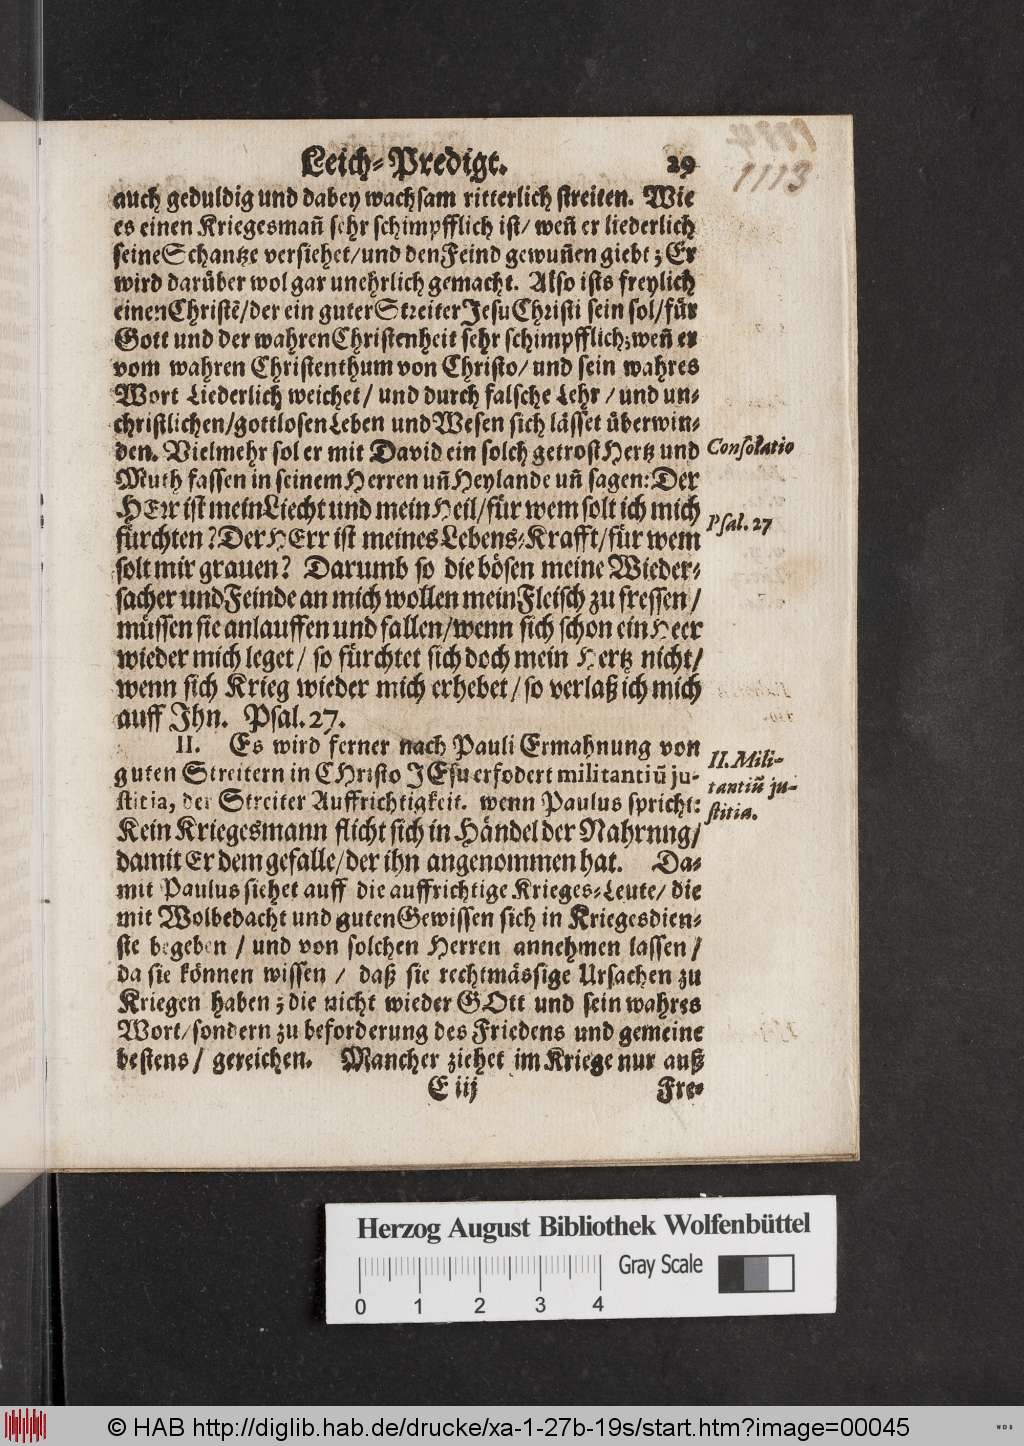 Leich-Predigt. 29
1113
auch geduldig und dabey wachsam ritterlich streiten. Wie
es einen Kriegesmañ sehr schimpfflich ist/ weñ er liederlich
seine Schantze versiehet/und den Feind gewuñen giebt; Er
wird darüber wol gar unehrlich gemacht. Also ists freylich
einen Christẽ/der ein guter Streiter Jesu Christi sein sol/für
Gott und der wahren Christenheit sehr schimpfflich; weñ er
vom wahren Christenthum von Christo/ und sein wahres
Wort Liederlich weichet/ und durch falsche Lehr/ und un-
christlichen/gottlosen Leben und Wesen sich lässet überwin-
den. Vielmehr sol er mit David ein solch getrost Hertz und
Consolatio
Muth fassen in seinem Herren uñ Heylande uñ sagen: Der
HErr ist mein Liecht und mein Heil/für wem solt ich mich
Psal. 27
fürchten? Der HErr ist meines Lebens-Krafft/für wem
solt mir grauen? Darumb so die bösen meine Wieder-
sacher und Feinde an mich wollen mein Fleisch zu fressen/
müssen sie anlauffen und fallen/wenn sich schon ein Heer
wieder mich leget/ so fürchtet sich doch mein Hertz nicht/
wenn sich Krieg wieder mich erhebet/so verlaß ich mich
auff Jhn. Psal. 27.
II. Es wird ferner nach Pauli Ermahnung von
guten Streitern in CHristo JEsu erfodert militantiũ ju-
stitia, der Streiter Auffrichtigkeit. wenn Paulus spricht:
II. Mili-
tantiũ ju-
stitia.
Kein Kriegesmann flicht sich in Händel der Nahrung/
damit Er dem gefalle/der ihn angenommen hat. Da-
mit Paulus siehet auff die auffrichtige Krieges-Leute/ die
mit Wolbedacht und guten Gewissen sich in Kriegesdien-
ste begeben/ und von solchen Herren annehmen lassen/
da sie können wissen/ daß sie rechtmässige Ursachen zu
Kriegen haben; die nicht wieder GOtt und sein wahres
Wort/sondern zu beforderung des Friedens und gemeine
bestens/ gereichen. Mancher ziehet im Kriege nur auß
E iij Fre-
Herzog August Bibliothek Wolfenbüttel
Gray Scale
0 1 2 3 4
© HAB http://diglib.hab.de/drucke/xa-1-27b-19s/start.htm?image=00045